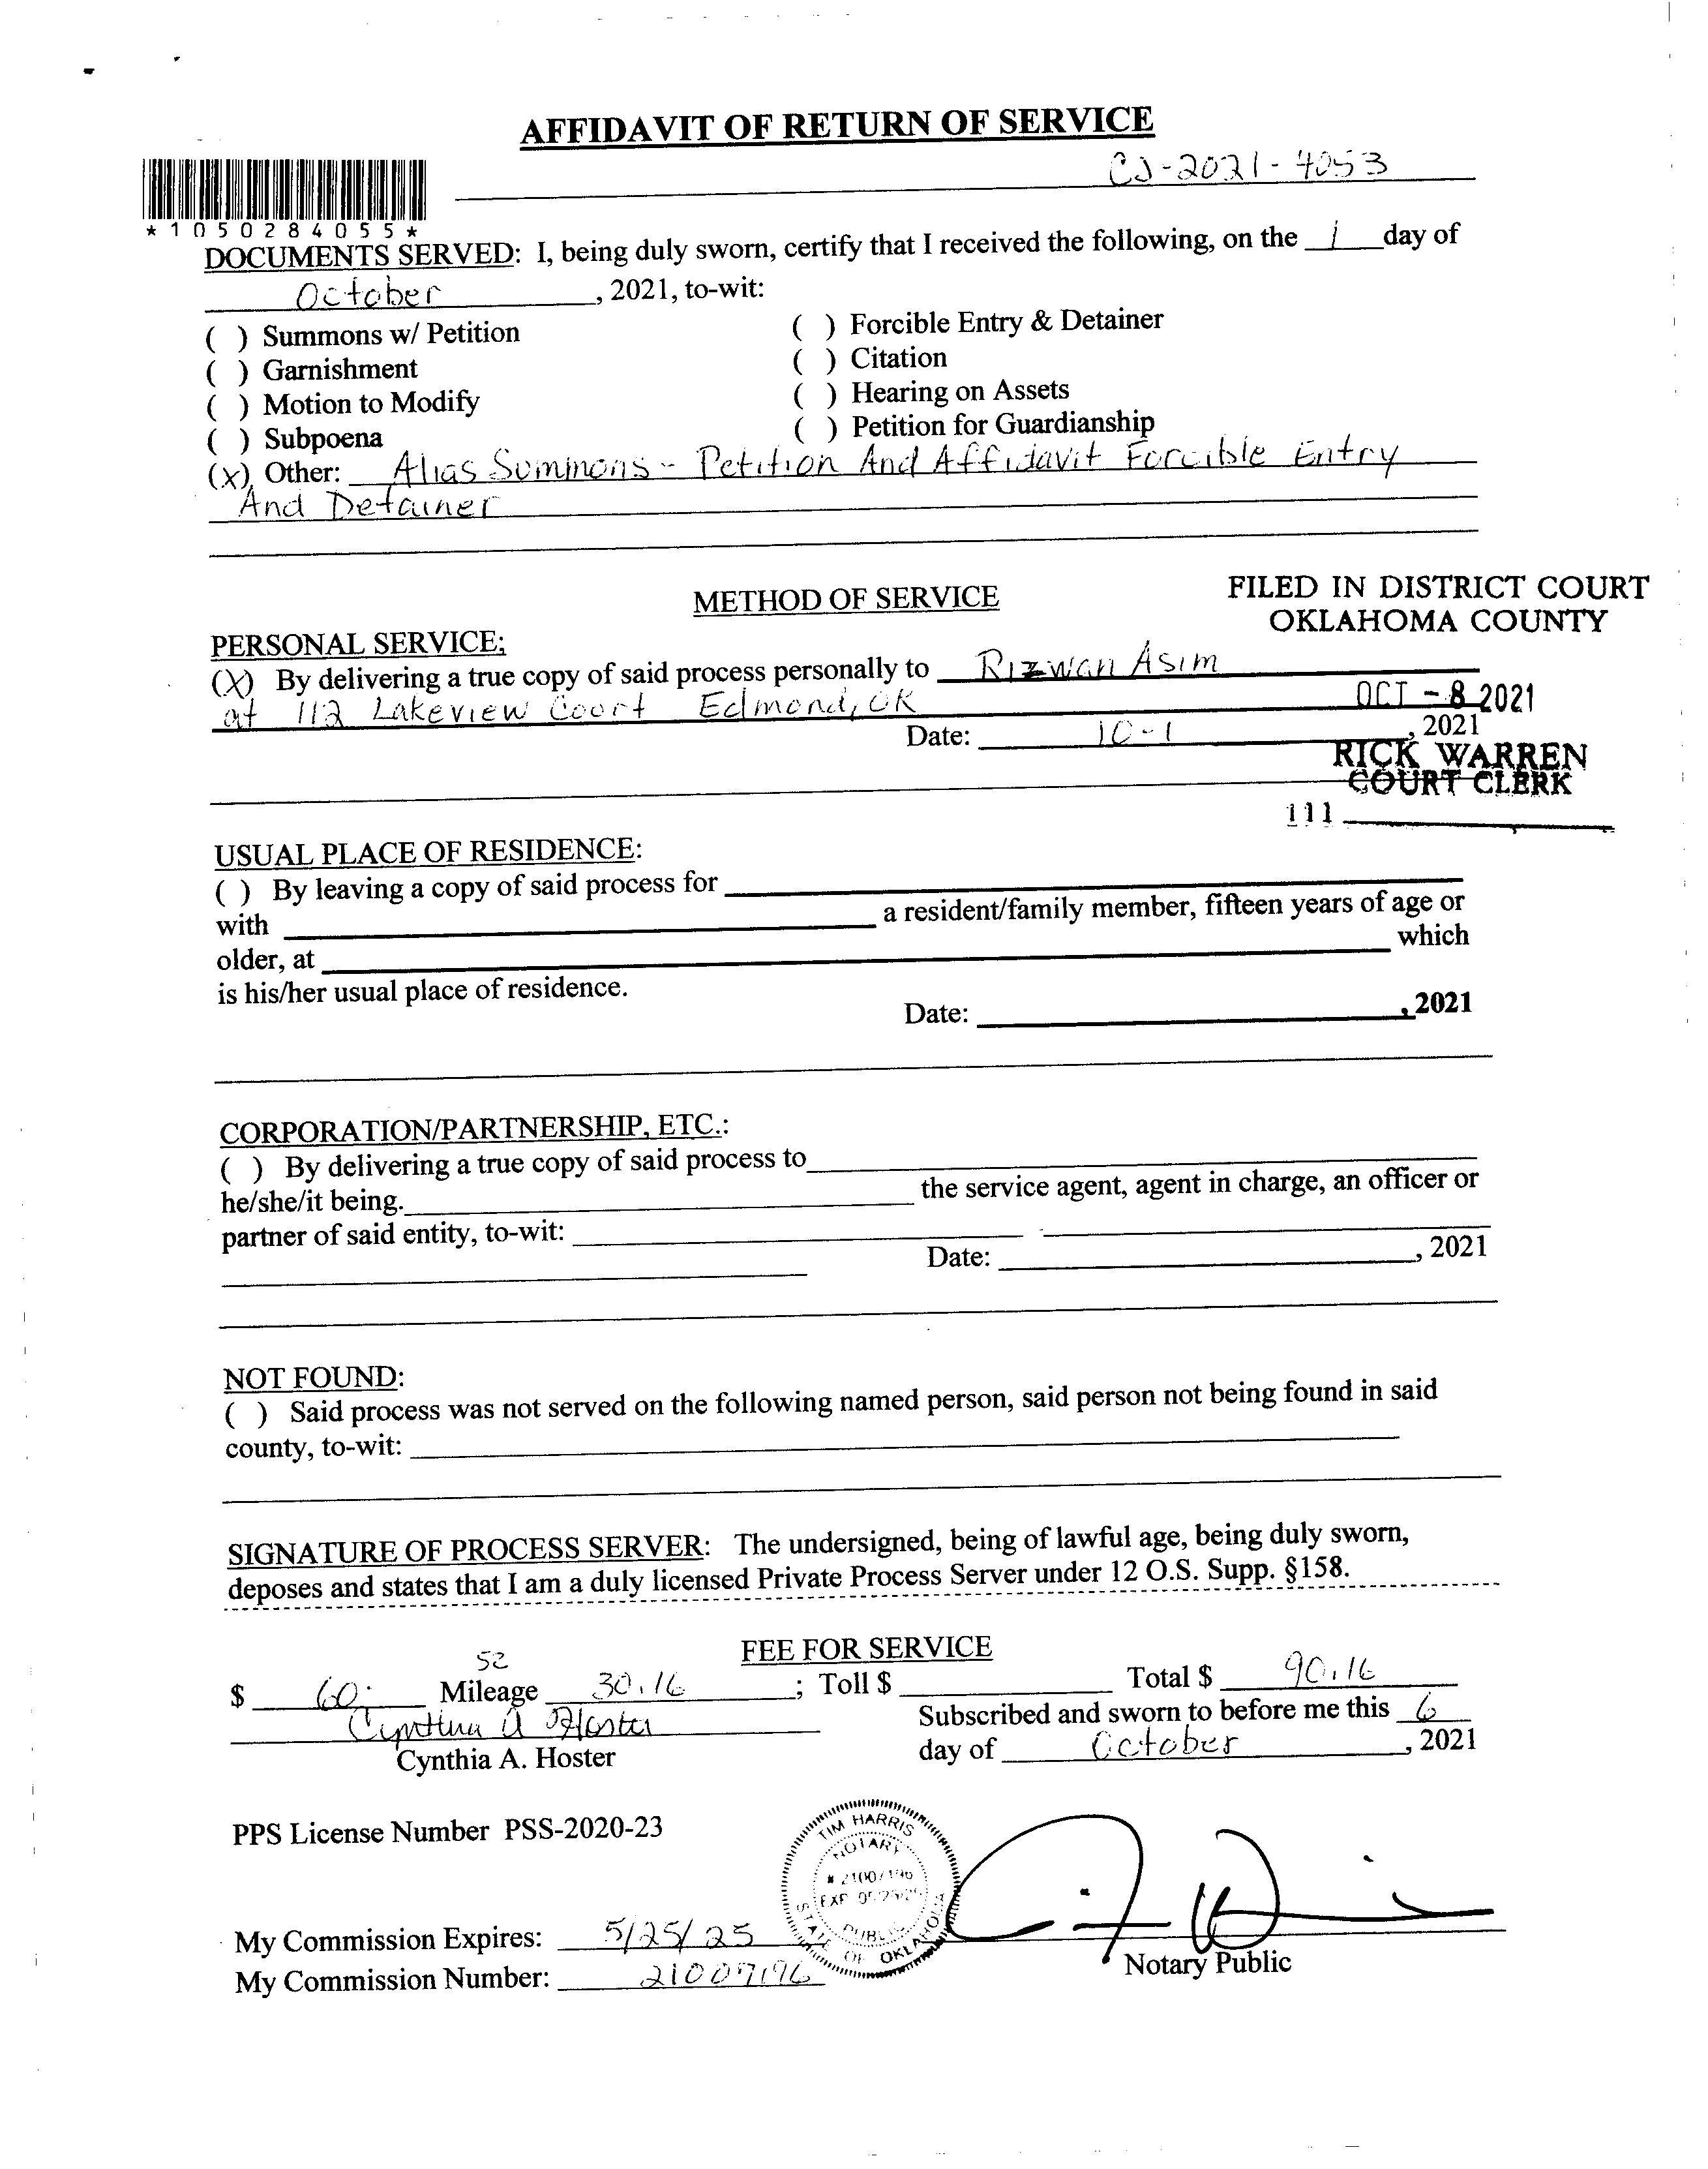 AFFIDAVIT OF RETURN OF SERVICE
CJ-2021-4053
*1050284055*
DOCUMENTS SERVED: I, being duly sworn, certify that I received the following, on the 1 day of
October, 2021, to-wit:
( ) Summons w/ Petition
( ) Forcible Entry & Detainer
( ) Garnishment
( ) Citation
( ) Motion to Modify
( ) Hearing on Assets
( ) Subpoena
( ) Petition for Guardianship
(x) Other: Alias Summons - Petition And Affidavit Forcible Entry
And Detainer
METHOD OF SERVICE
FILED IN DISTRICT COURT
OKLAHOMA COUNTY
PERSONAL SERVICE:
(X) By delivering a true copy of said process personally to Rizwan Asim
at 112 Lakeview Court Edmond, OK
OCT - 8 2021
Date: 10-1, 2021
RICK WARREN
COURT CLERK
111
USUAL PLACE OF RESIDENCE:
( ) By leaving a copy of said process for
with a resident/family member, fifteen years of age or
older, at which
is his/her usual place of residence.
Date: , 2021
CORPORATION/PARTNERSHIP, ETC.:
( ) By delivering a true copy of said process to
he/she/it being. the service agent, agent in charge, an officer or
partner of said entity, to-wit:
Date: , 2021
NOT FOUND:
( ) Said process was not served on the following named person, said person not being found in said
county, to-wit:
SIGNATURE OF PROCESS SERVER: The undersigned, being of lawful age, being duly sworn,
deposes and states that I am a duly licensed Private Process Server under 12 O.S. Supp. §158.
FEE FOR SERVICE
52
$ 60. Mileage 30.16; Toll $ Total $ 90.16
Cynthia A Hoster
Subscribed and sworn to before me this 6
Cynthia A. Hoster
day of October, 2021
PPS License Number PSS-2020-23
TIM HARRIS
NOTARY
PUBLIC
STATE OF OKLAHOMA
My Commission Expires: 5/25/25
Notary Public
My Commission Number: 21007196